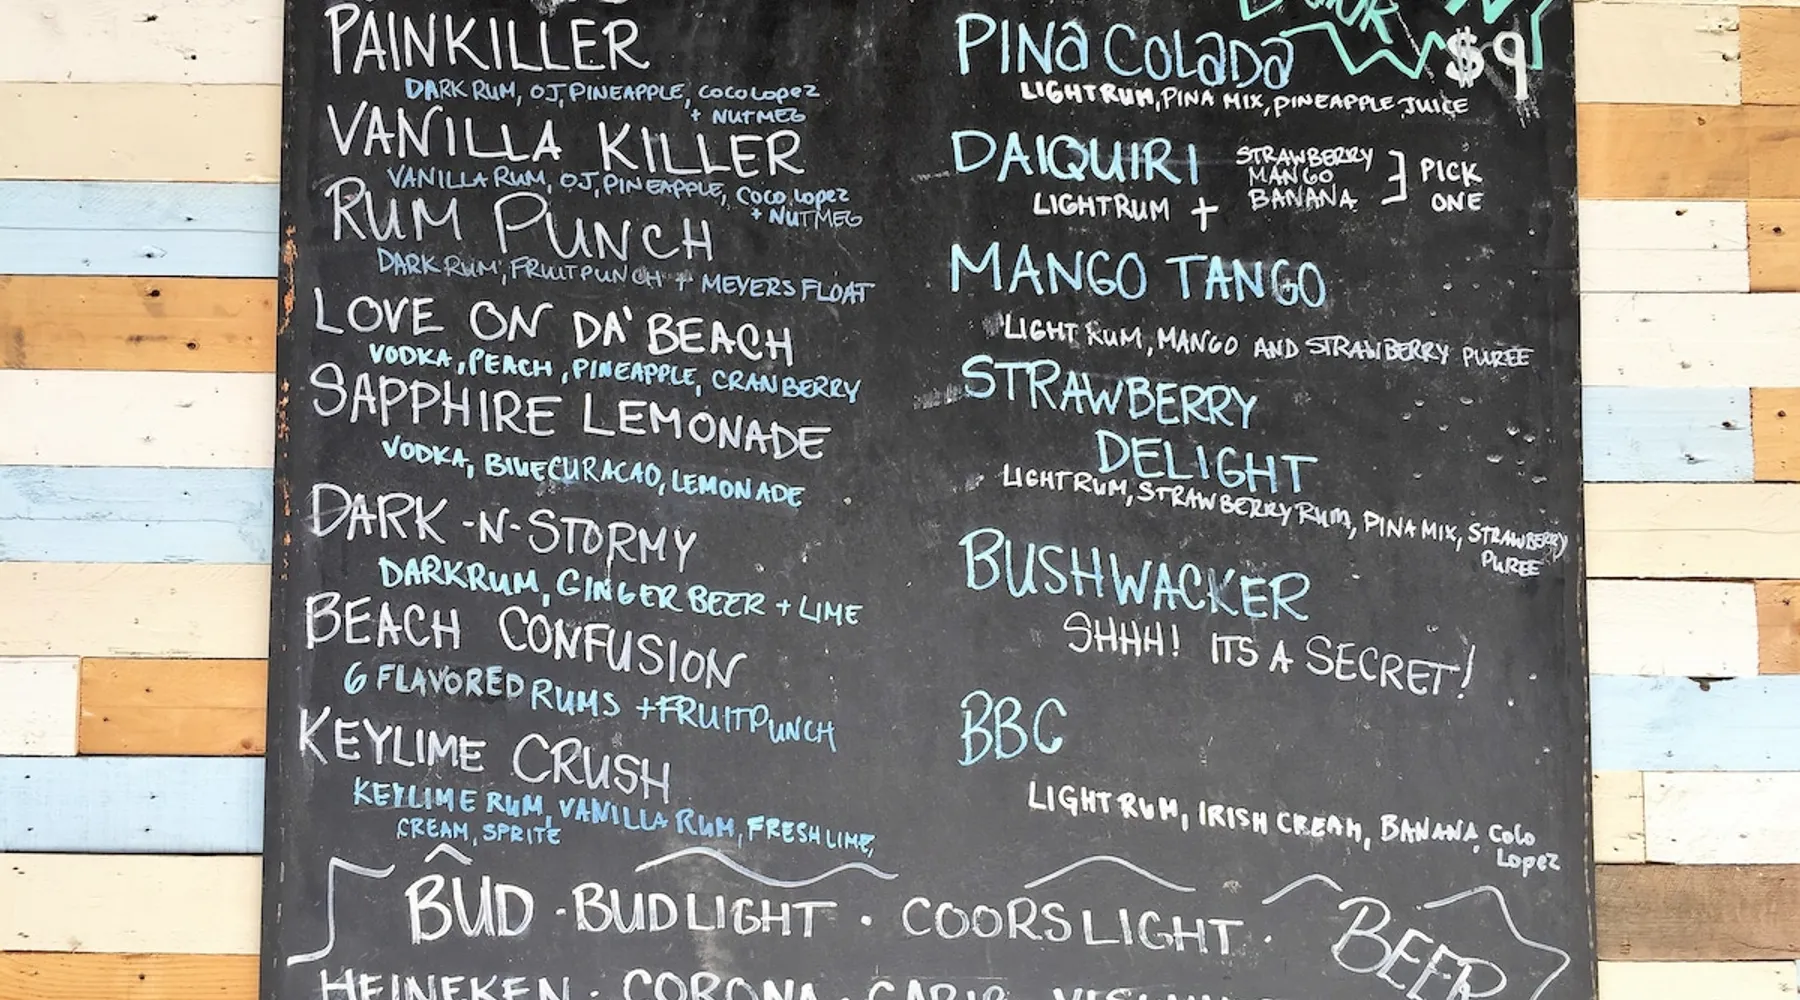 PAINKILLER
DARK RUM, OJ, PINEAPPLE, COCO LOPEZ
+ NUTMEG
VANILLA KILLER
VANILLA RUM, OJ, PINEAPPLE, COCO LOPEZ
+ NUTMEG
RUM PUNCH
DARK RUM, FRUIT PUNCH + MEYERS FLOAT
LOVE ON DA' BEACH
VODKA, PEACH, PINEAPPLE, CRANBERRY
SAPPHIRE LEMONADE
VODKA, BLUE CURACAO, LEMONADE
DARK-N-STORMY
DARK RUM, GINGER BEER + LIME
BEACH CONFUSION
6 FLAVORED RUMS + FRUIT PUNCH
KEYLIME CRUSH
KEYLIME RUM, VANILLA RUM, FRESH LIME,
CREAM, SPRITE
$9
PINA COLADA
LIGHT RUM, PINA MIX, PINEAPPLE JUICE
DAIQUIRI
STRAWBERRY
MANGO
BANANA
PICK
ONE
LIGHT RUM +
MANGO TANGO
LIGHT RUM, MANGO AND STRAWBERRY PUREE
STRAWBERRY
DELIGHT
LIGHT RUM, STRAWBERRY RUM, PINA MIX, STRAWBERRY
PUREE
BUSHWACKER
SHHH! ITS A SECRET!
BBC
LIGHT RUM, IRISH CREAM, BANANA, COLO
LOPEZ
BUD · BUD LIGHT · COORS LIGHT ·
BEER
HEINEKEN · CORONA · CARIB